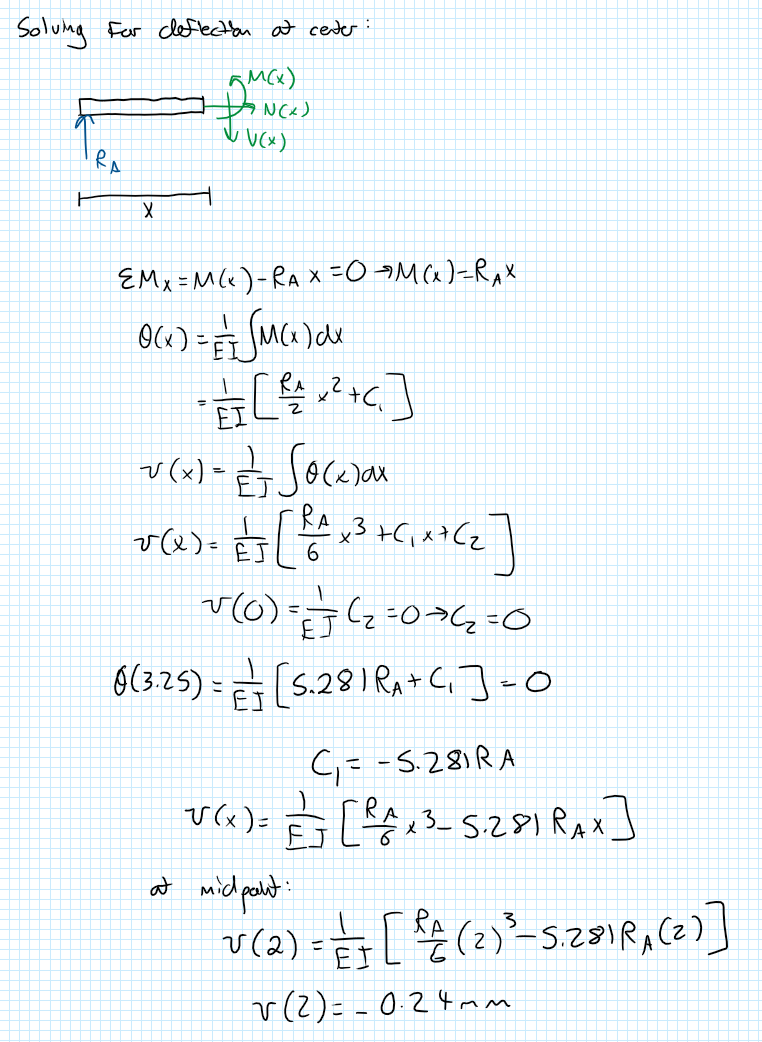 Solving For deflection at center:
M(x)
N(x)
V(x)
R_A
x
ΣM_x = M(x) - R_A x = 0 → M(x) = R_A x
θ(x) = 1/EI ∫M(x)dx
= 1/EI [R_A/2 x² + C₁]
v(x) = 1/EI ∫θ(x)dx
v(x) = 1/EI [R_A/6 x³ + C₁x + C₂]
v(0) = 1/EI C₂ = 0 → C₂ = 0
θ(3.25) = 1/EI [5.281 R_A + C₁] = 0
C₁ = -5.281 R_A
v(x) = 1/EI [R_A/6 x³ - 5.281 R_A x]
at midpoint:
v(2) = 1/EI [R_A/6 (2)³ - 5.281 R_A (2)]
v(2) = -0.24mm